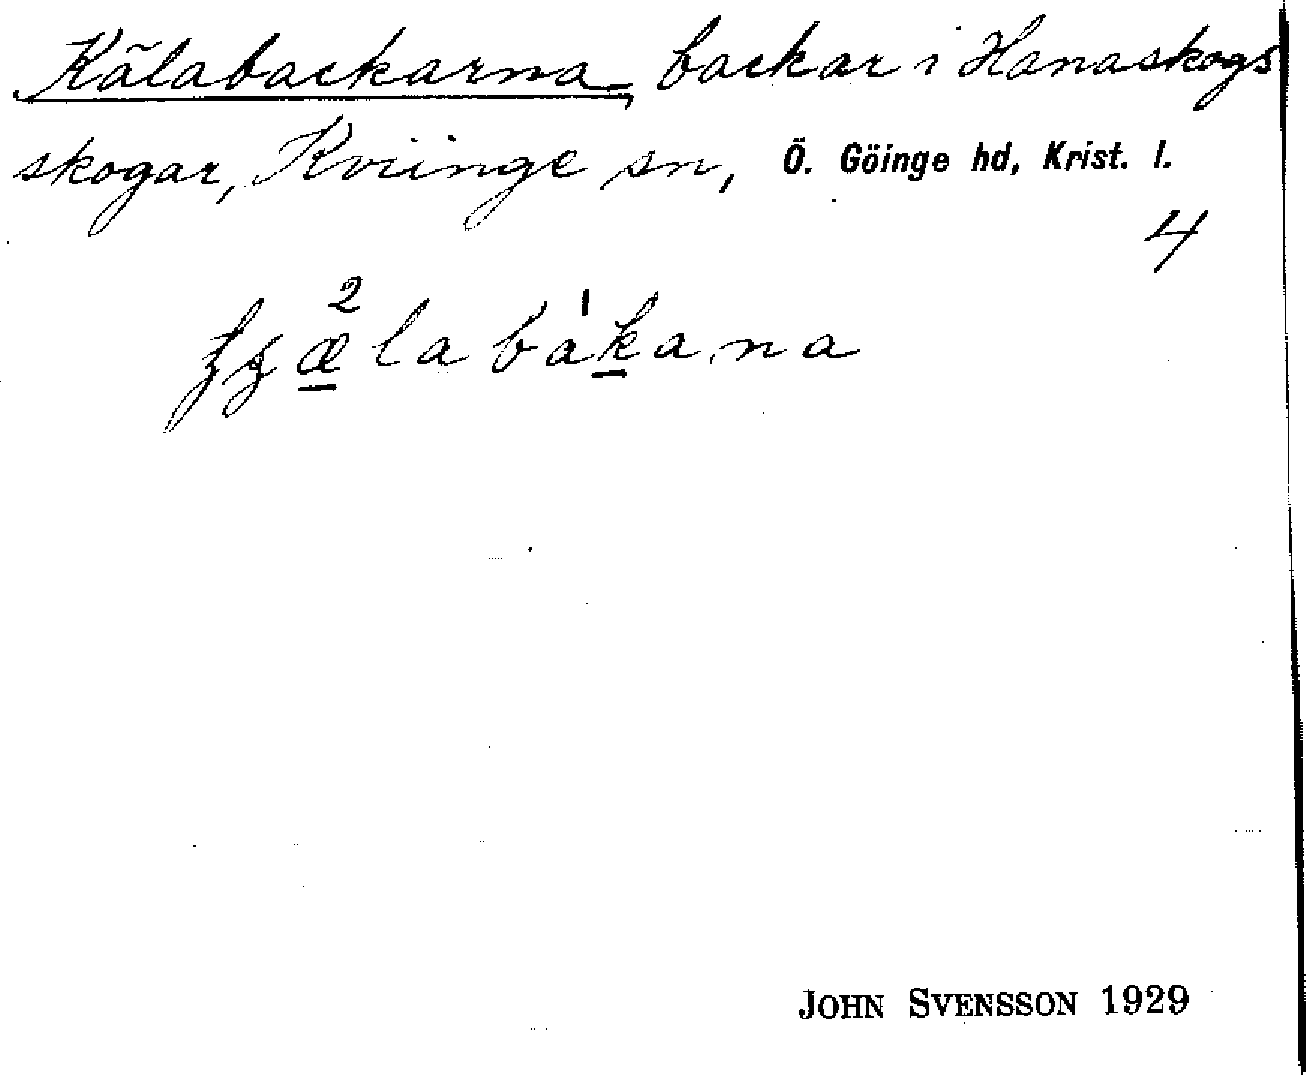 Kälabackarna, backar i Hanaskogs
skogar, Kviinge sn, Ö. Göinge hd, Krist. l.
4
JOHN SVENSSON 1929